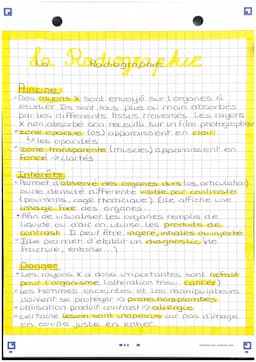 La Radiographie
Principe
• Des rayons X sont envoyé sur l'organes à
étudier. Ils sont tous plus ou moin absorbés
par les différents tissus traversés. Les rayons
X non absorbé son recueilli sur un film photographique
• zone opaque (os) apparaissent en clair
↳ les opacités
• zone transparente (muscles) apparaissent en
foncé → clartés
Intérêts
• Permet d'observé des organes durs (os, articulation)
ou de densité différente visible par contraste
(poumons, cage thoracique). Elle affiche une
image fixe des organes
• Afin de visualiser les organes remplis de
liquide ou d'air on utilise les produits de
contrast. Il peut être ingéré, inhalés ou injecté.
• Elle permet d'établir un diagnostic (de
fracture, entorse...)
Danger
• Les rayons X a dose importantes sont néfast
pour l'organisme (altération tissu, cancer)
• Les femmes enceintes et les manipulateurs
doivent se protéger →
• utilisation produit contrast → allergie
• certaine lésion sont inaperçus sur pas d'image
en coupe juste en entier.